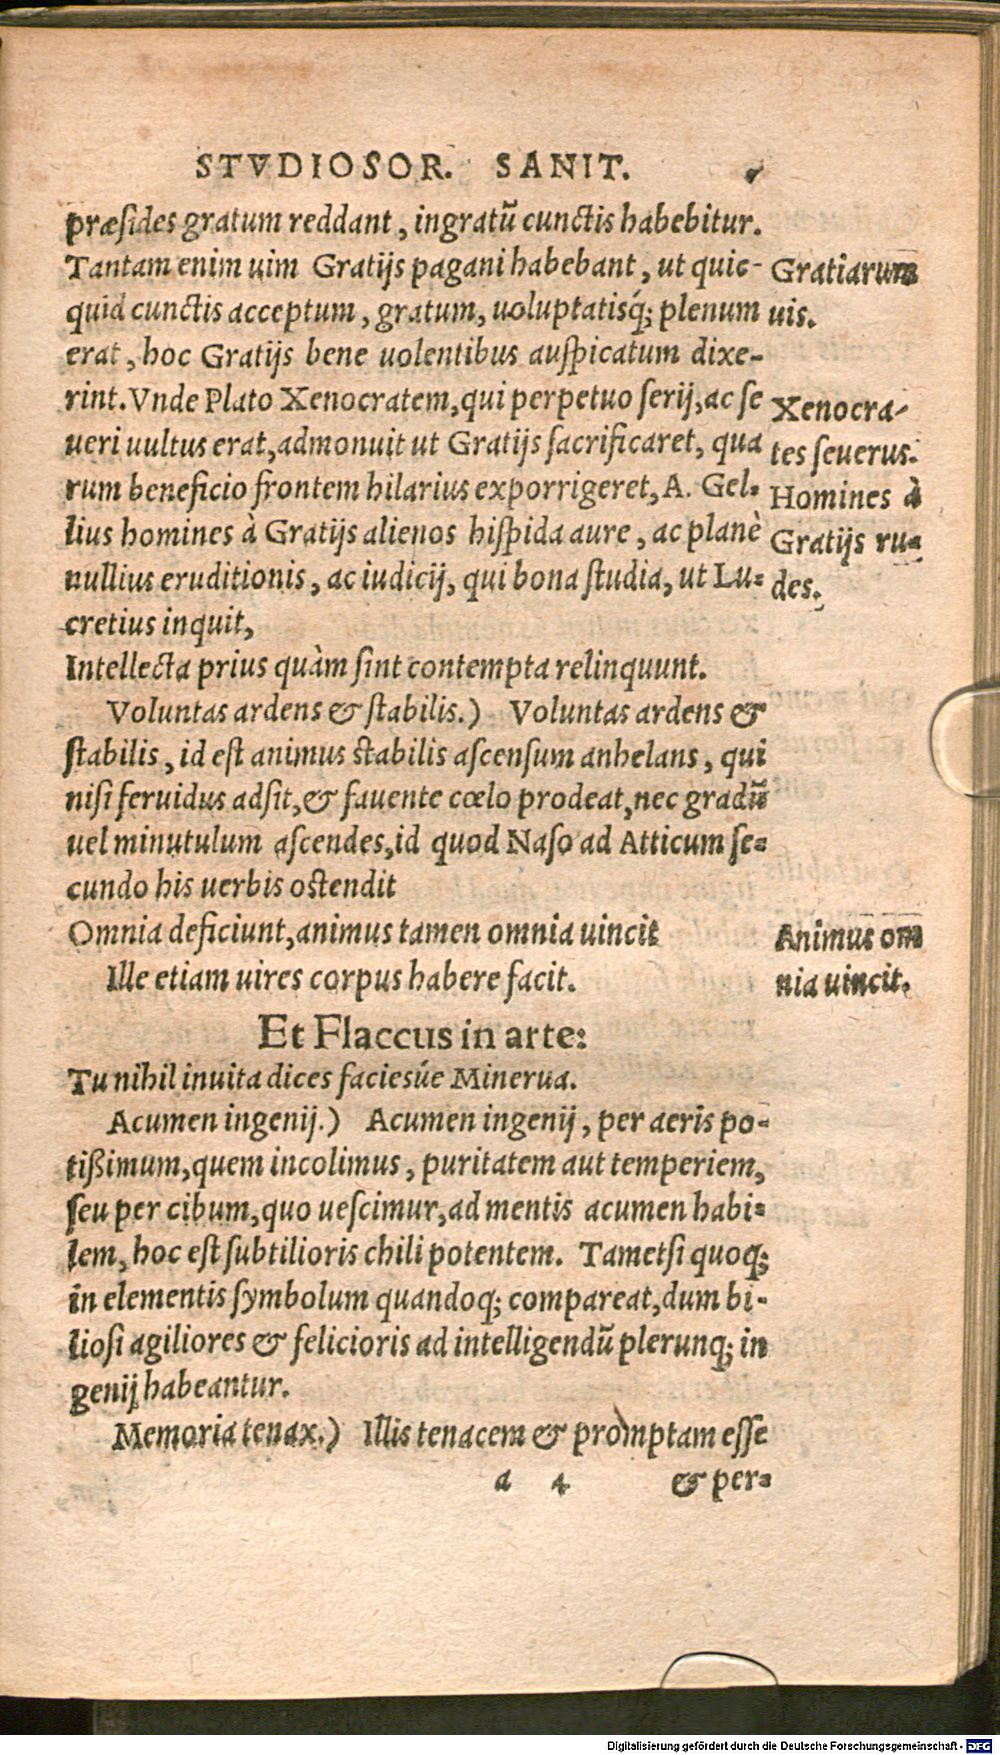 STVDIOSOR. SANIT.
præsides gratum reddant, ingratũ cunctis habebitur.
Tantam enim uim Gratijs pagani habebant, ut quic-
quid cunctis acceptum, gratum, uoluptatisq́; plenum
erat, hoc Gratijs bene uolentibus auspicatum dixe-
rint. Vnde Plato Xenocratem, qui perpetuo serij, ac se
ueri uultus erat, admonuit ut Gratijs sacrificaret, qua
rum beneficio frontem hilarius exporrigeret, A. Gel-
lius homines à Gratijs alienos hispida aure, ac planè
nullius eruditionis, ac iudicij, qui bona studia, ut Lu-
cretius inquit,
Intellecta prius quàm sint contempta relinquunt.
Voluntas ardens & stabilis.) Voluntas ardens &
stabilis, id est animus stabilis ascensum anhelans, qui
nisi feruidus adsit, & fauente cœlo prodeat, nec gradũ
uel minutulum ascendes, id quod Naso ad Atticum se-
cundo his uerbis ostendit
Omnia deficiunt, animus tamen omnia uincit
Ille etiam uires corpus habere facit.
Et Flaccus in arte:
Tu nihil inuita dices faciesúe Minerua.
Acumen ingenij.) Acumen ingenij, per aeris po-
tißimum, quem incolimus, puritatem aut temperiem,
seu per cibum, quo uescimur, ad mentis acumen habi-
lem, hoc est subtilioris chili potentem. Tametsi quoq;
in elementis symbolum quandoq; compareat, dum bi-
liosi agiliores & felicioris ad intelligendũ plerunq; in
genij habeantur.
Memoria tenax.) Illis tenacem & promptam esse
a 4 & per-
Gratiarum
uis.
Xenocra-
tes seuerus.
Homines à
Gratijs ru-
des.
Animus om
nia uincit.
Digitalisierung gefördert durch die Deutsche Forschungsgemeinschaft - DFG